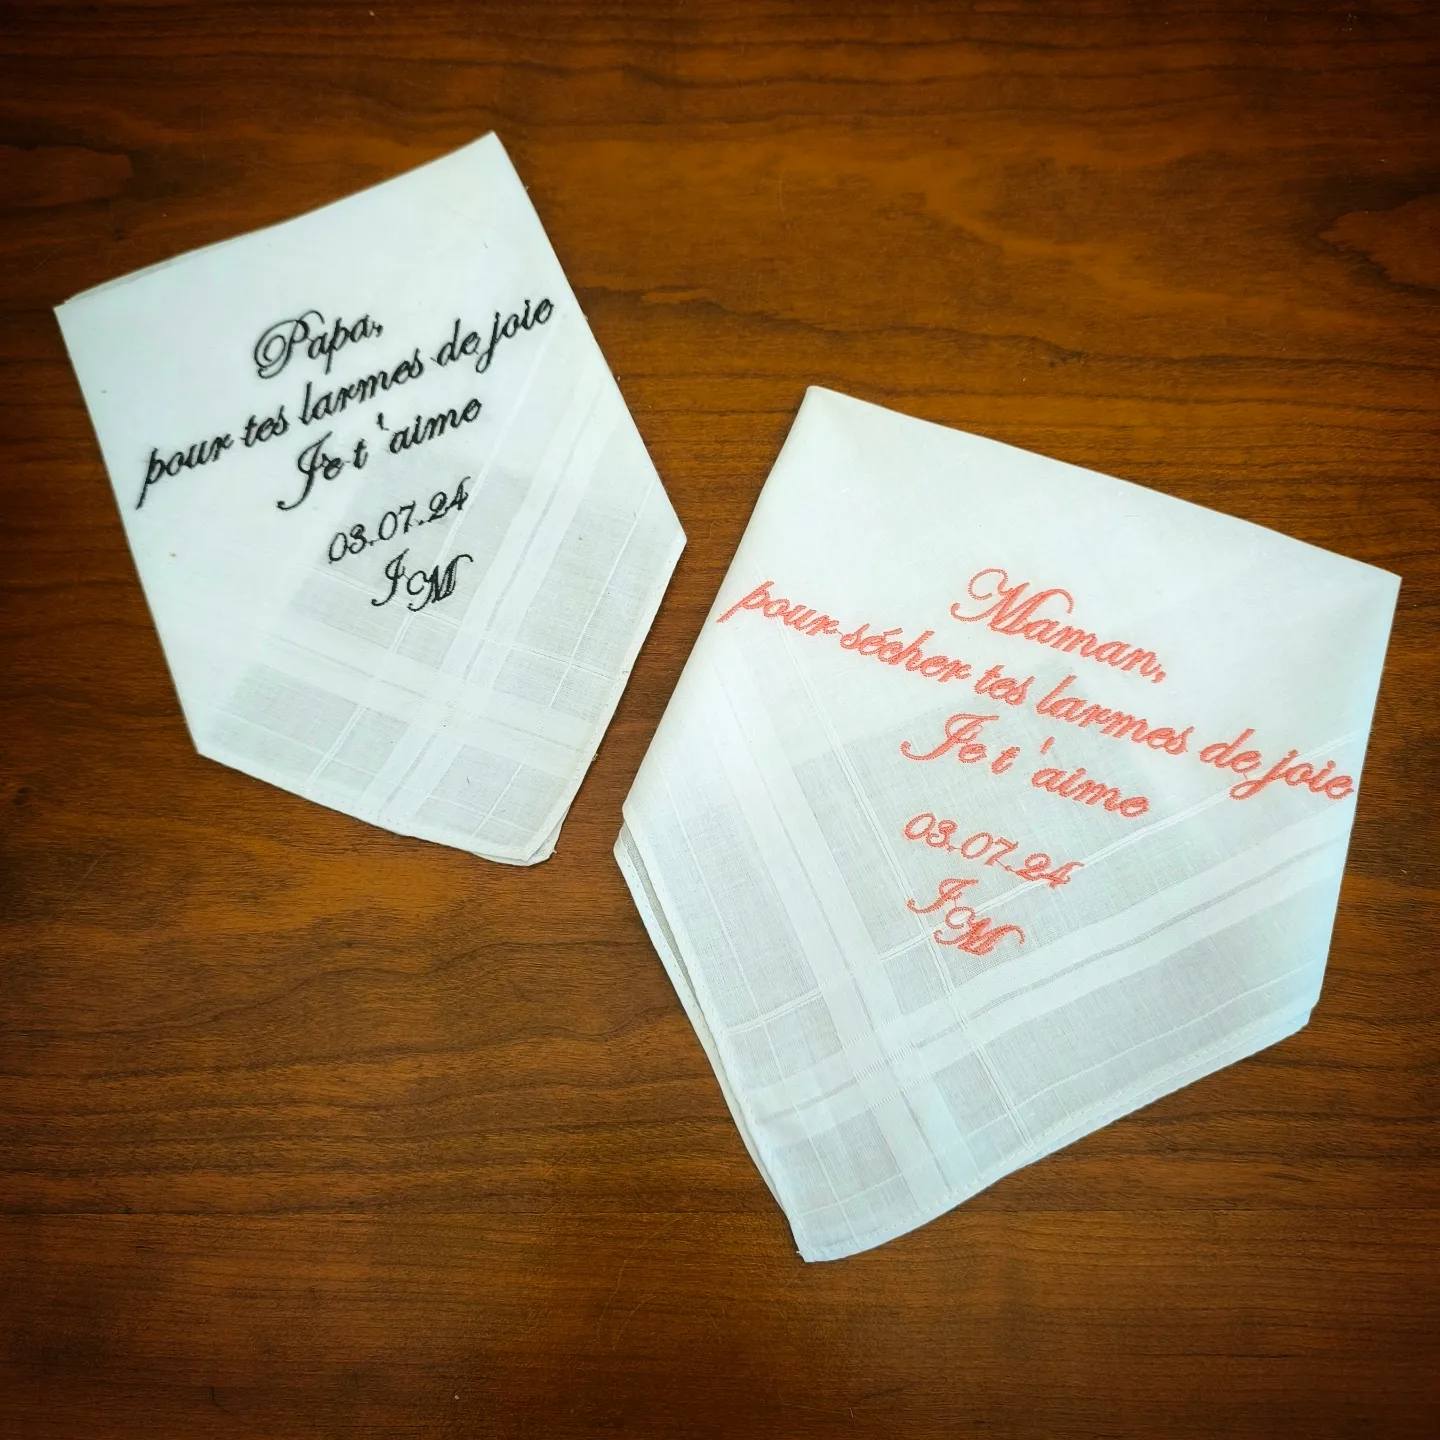 Papa,
pour tes larmes de joie
Je t'aime
03.07.24
JM
Maman,
pour sécher tes larmes de joie
Je t'aime
03.07.24
JM